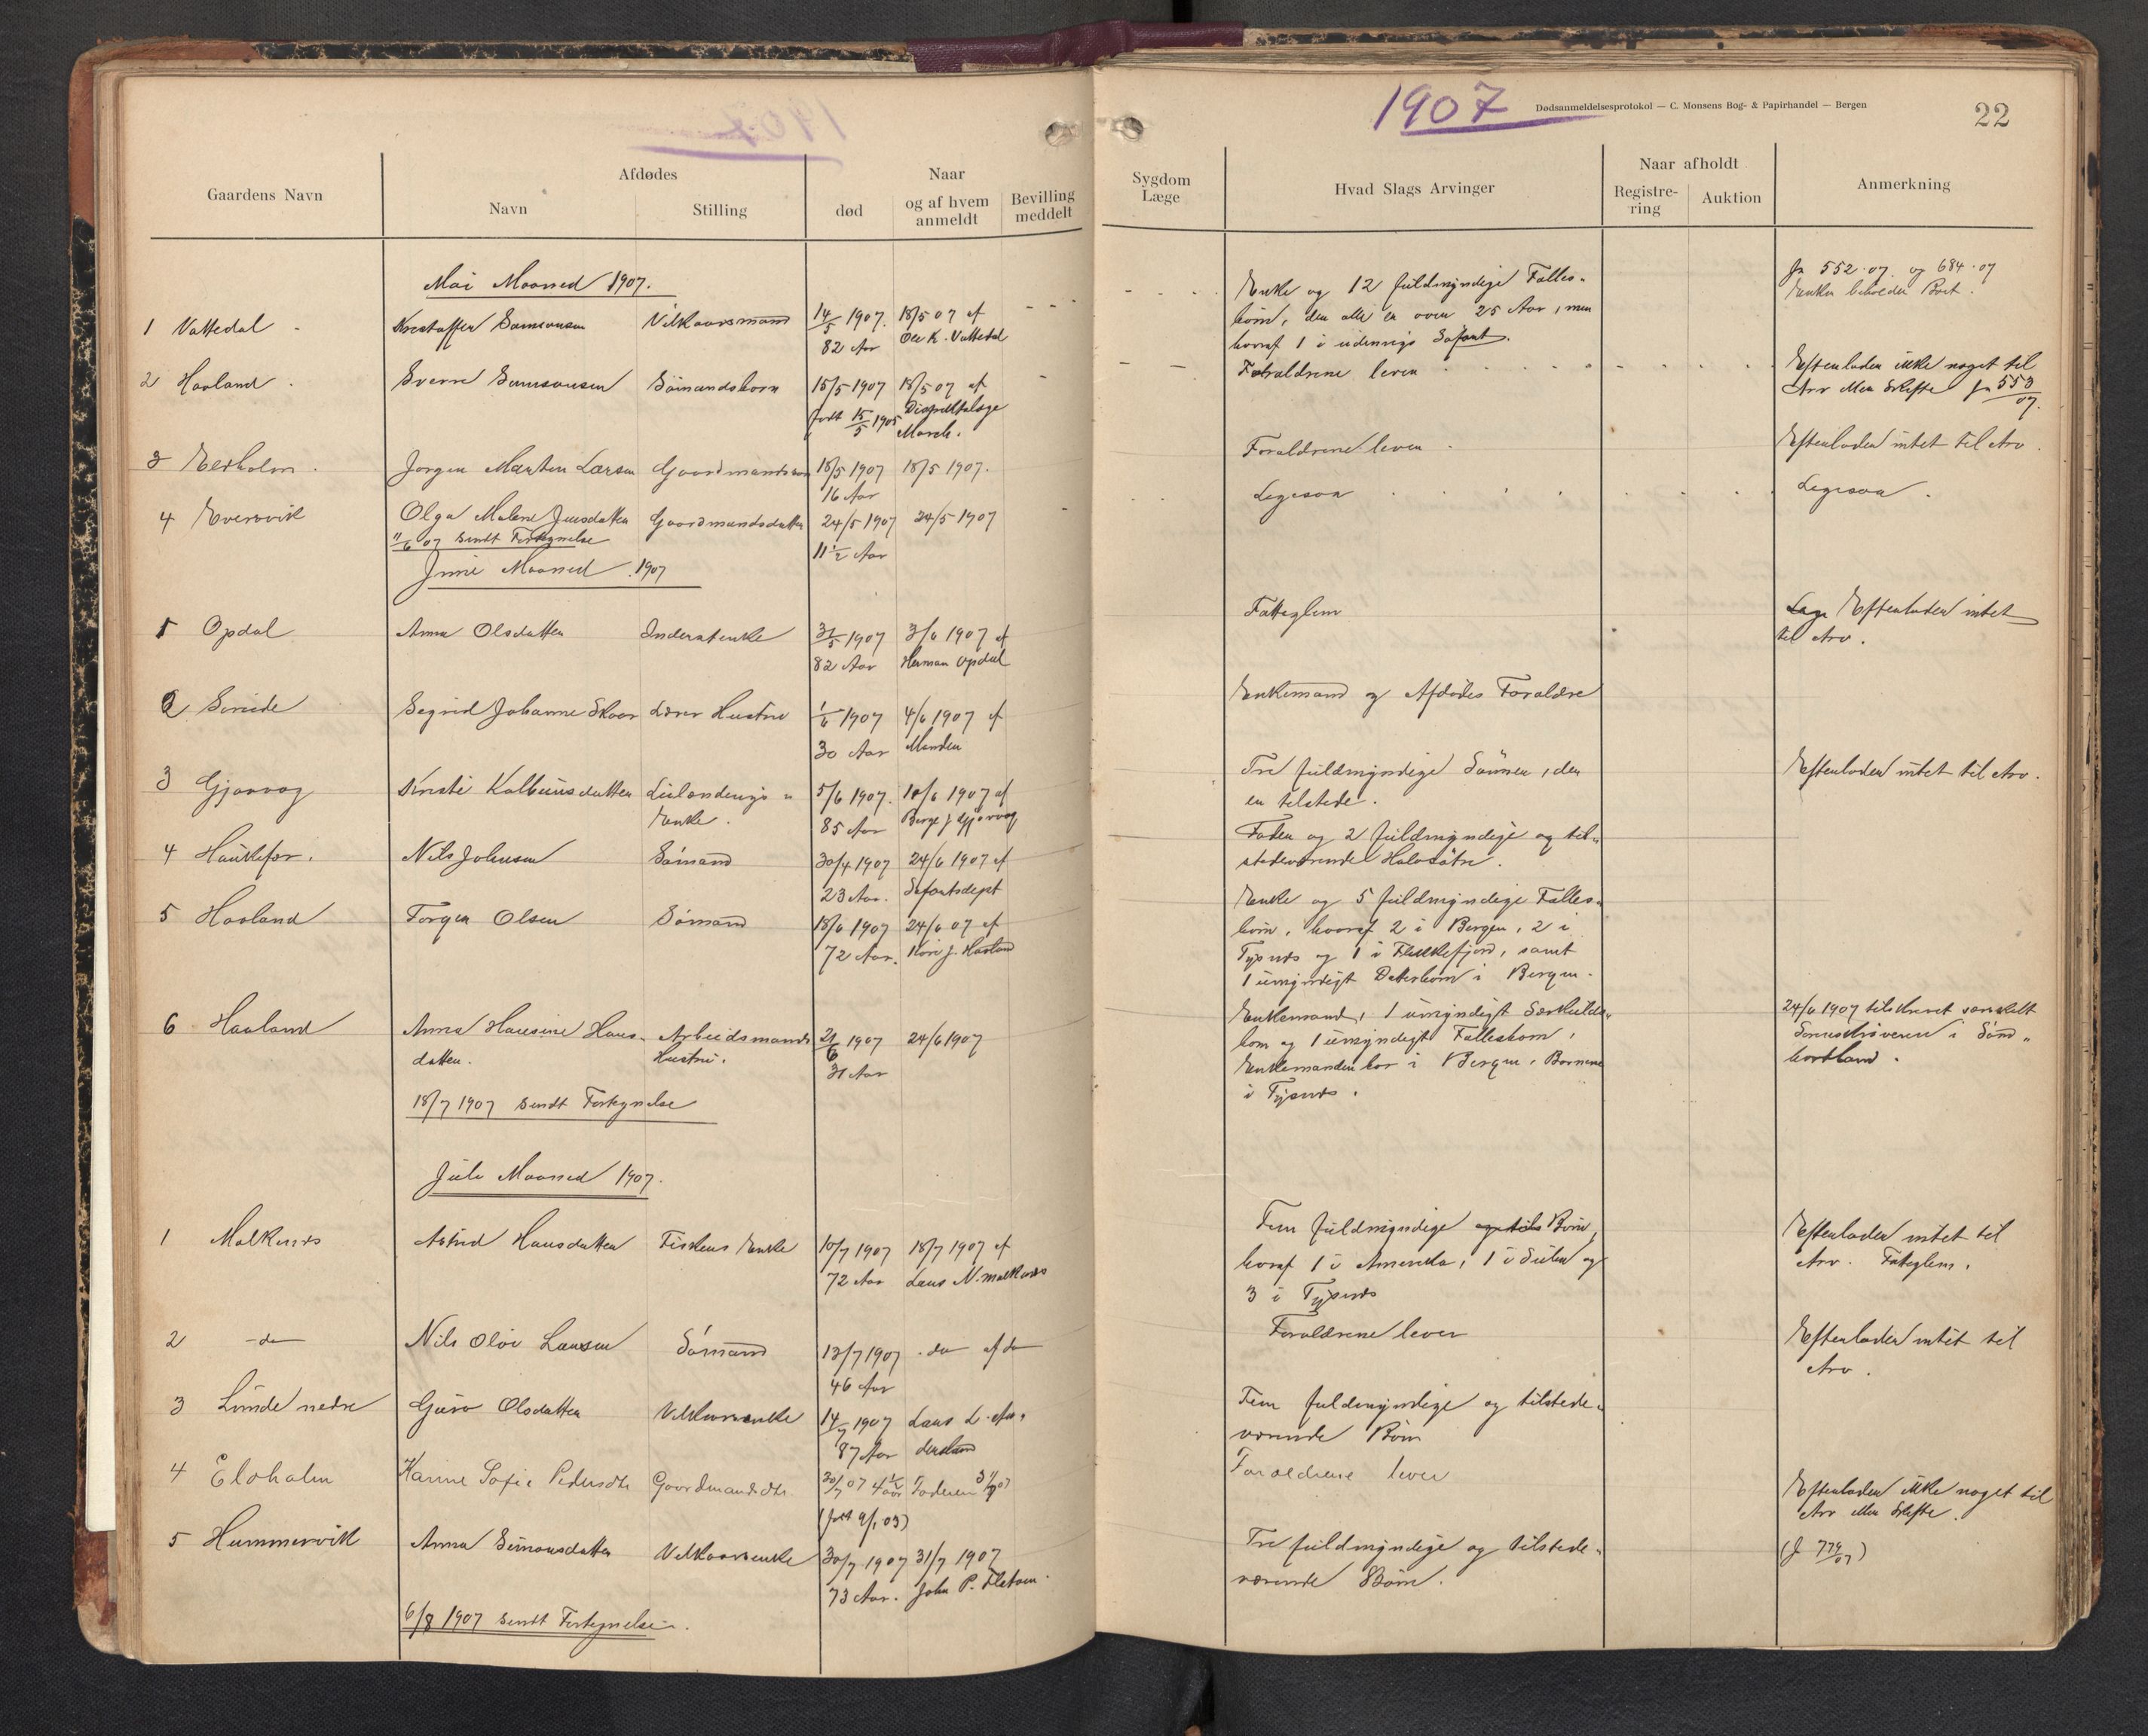 1907
Dødsanmeldelsesprotokol — C. Monsens Bog- & Papirhandel — Bergen
22
Gaardens Navn
Afdødes
Navn
Stilling
Naar
død
og af hvem anmeldt
Bevilling meddelt
Sygdom Læge
Hvad Slags Arvinger
Naar afholdt
Registrering
Auktion
Anmerkning
Mai Maaned 1907.
1 Vattedal Kristoffer Samsonsen Vilkaarsmand 14/5 1907. 18/5 07 af
82 Aar Ole K. Vattedal
Enke og 12 fuldmyndige Fælles-
børn, der alle er over 25 Aar, men
hvoraf 1 i udenrigs Søfart.
Jr 552.07. og 684.07
Enken beholder Boet.
2 Haaland Sverre Samsonsen Sømandsbarn 15/5 1907 18/5 07 af
født 15/5 1905
Forældrene lever
Efterlader ikke noget til
Arv eller Skifte Jr 553/07.
3 Jørgen Marten Larsen Gaardmandssøn 18/5 1907 18/5 1907.
16 Aar
Forældrene lever
Efterlader intet til Arv.
4 Eversvik Olga Malene Jensdatter Gaardmandsdatter 24/5 1907 24/5 1907
11 1/2 Aar
Ligesaa
Ligesaa.
11/6 07 sendt Fortegnelse
Juni Maaned 1907
1 Opdal Anna Olsdatter Inderstenke 31/5 1907 3/6 1907 af
82 Aar Herman Opdal
Fatteglem
Efterlader intet
til Arv.
2 Sigrid Johanne Skaar Lærer Hustru 1/6 1907 4/6 1907 af
30 Aar Manden
Enkemand og Afdødes Forældre
3 Gjøvaag Kristi Kolbeinsdatter
Enke.
5/6 1907. 10/6 1907 af
85 Aar
Tre fuldmyndige Sønner, der
er tilstede.
Efterlader intet til Arv.
4 Nils Johnsen Sømand 30/4 1907 24/6 1907 af
23 Aar. Søfartsdept
Fader og 2 fuldmyndige og til-
stedeværende Halvsøstre.
5 Haaland Torger Olsen Sømand 18/6 1907 24/6 07 af
72 Aar. Haaland
Enke og 5 fuldmyndige Fælles-
børn, hvoraf 2 i Bergen, 2 i
Tysnes og 1 i Flekkefjord, samt
1 umyndigt Datterbarn i Bergen.
6 Haaland Anna Hansine Hans-
datter.
Arbeidsmands
Hustru.
21/6 1907 24/6 1907
31 Aar
Enkemand, 1 umyndigt Særkuld-
barn og 1 umyndigt Fællesbarn,
Enkemanden bor i Bergen, Børnene
i Tysnes.
24/6 1907 tilskrevet
Sorenskriveren i Sønd-
hordland.
18/7 1907 sendt Fortegnelse
Juli Maaned 1907.
1 Malkenes Astrid Hansdatter Fiskers Enke 10/7 1907 18/7 1907 af
72 Aar Lars N. Malkenes
Fem fuldmyndige Børn,
hvoraf 1 i Amerika, 1 i Sulen og
3 i Tysnes
Efterlader intet til
Arv. Fateglem.
2 -do- Nils Olai Larsen Sømand 13/7 1907 -do- af do
46 Aar
Forældrene lever
Efterlader intet til
Arv.
3 Lunde nedre Guro Olsdatter Vilkaarsenke 14/7 1907 Lars L.
87 Aar
Fem fuldmyndige og tilstede-
værende Børn
4 Eloholm Karine Sofie Pedersdtr Gaardmandsdtr. 30/7 07 4 1/2 aar Faderen 31/7 07
(født 9/1 03)
Forældrene lever
Efterlader ikke noget til
Arv eller Skifte.
5 Hummervik Anna Simonsdatter Vilkaarsenke 30/7 1907 31/7 1907
73 Aar. John P.
Tre fuldmyndige og tilstede-
værende Børn.
(J 779/07)
6/8 1907 sendt Fortegnelse.